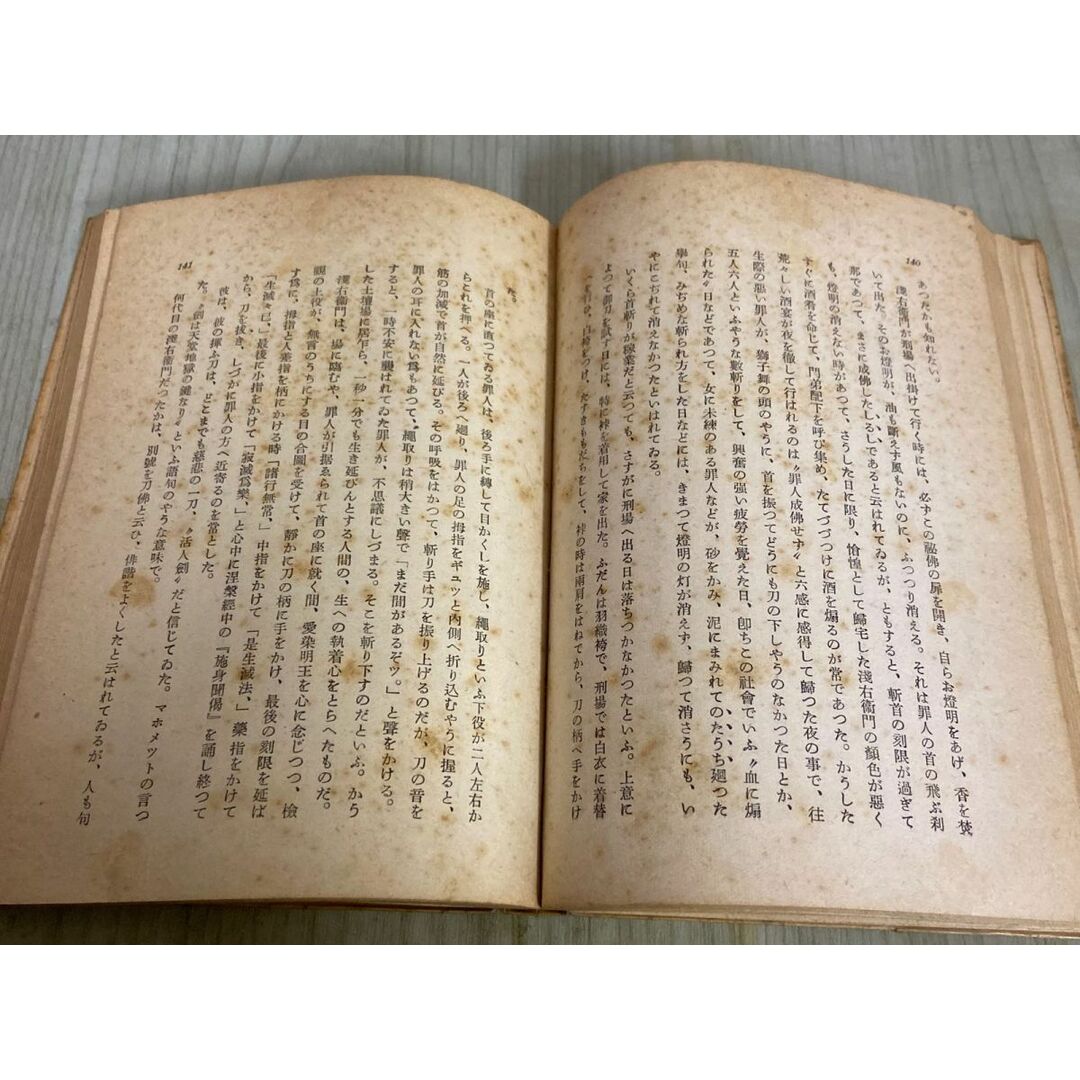 140
あつたかも知れない。
淺右衞門が刑場へ出掛けて行く時には、必ずこの祕佛の扉を開き、自らお燈明をあげ、香を焚
いて出た。そのお燈明が、油も斷えず風もないのに、ふつつり消える。それは罪人の首の飛ぶ刹
那であつて、まさに成佛したしるしであると云はれてゐるが、ともすると、斬首の刻限が過ぎて
も、燈明の消えない時があつて、さうした日に限り、愴惶として歸宅した淺右衞門の顏色が惡く
すぐに酒肴を命じて、門弟配下を呼び集め、たてつゞけに酒を煽るのが常であつた。かうした
荒々しい酒宴が夜を徹して行はれるのは〝罪人成佛せず〟と六感に感得して歸つた夜の事で、往
生際の惡い罪人が、獅子舞の頭のやうに、首を振つてどうにも刀の下しやうのなかつた日とか、
五人六人といふやうな數斬りをして、興奮の強い疲勞を覺えた日、卽ちこの社會でいふ〝血に煽
られた〟日などであつて、女に未練のある罪人などが、砂をかみ、泥にまみれてのたうち廻つた
擧句、みぢめな斬られ方をした日などには、きまつて燈明の灯が消えず、歸つて消さうにも、い
やにこぢれて消えなかつたといはれてゐる。
いくら首斬りが稼業だと云つても、さすがに刑場へ出る日は落ちつかなかつたといふ。上意に
よつて御刀を試す日には、特に裃を着用して家を出た。ふだんは羽織袴で、刑場では白衣に着替
へ、白襷をつけ、たすきももだちをして、裃の時は兩肩をはねてから、刀の柄へ手をかけ
141
た。
首の座に直つてゐる罪人は、後ろ手に縛して目かくしを施し、繩取りといふ下役が二人左右か
らこれを押へる。一人が後ろへ廻り、罪人の足の拇指をギュッと內側へ折り込むやうに握ると、
筋の加減で首が自然に延びる。その呼吸をはかつて、斬り手は刀を振り上げるのだが、刀の音を
罪人の耳に入れない爲もあつて、繩取りは稍大きい聲で「まだ間があるぞッ。」と聲をかける。
すると、一時不安に襲はれてゐた罪人が、不思議にしづまる。そこを斬り下すのだといふ。かう
した土壇場に居乍ら、一秒一分でも生き延びんとする人間の、生への執着心をとらへたものだ。
淺右衞門は、場に臨むや、罪人が引据ゑられて首の座に就く間、愛染明王を心に念じつつ、檢
視の上役が、無言のうちにする目の合圖を受けて、靜かに刀の柄に手をかけ、最後の刻限を延ば
す爲に、拇指と人差指を柄にかける時「諸行無常、」中指をかけて「是生滅法、」藥指をかけて
「生滅々已、」最後に小指をかけて「寂滅爲樂、」と心中に涅槃經中の『施身聞偈』を誦し終つて
から、刀を拔き、しづかに罪人の方へ近寄るのを常とした。
彼は、彼の揮ふ刀は、どこまでも慈悲の一刀、〝活人劍〟だと信じてゐた。マホメツトの言つ
た。〝劍は天堂地獄の鍵なり〟といふ語句のやうな意味で。
何代目の淺右衞門だつたかは、別號を刀佛と云ひ、俳諧をよくしたと云はれてゐるが、人も句